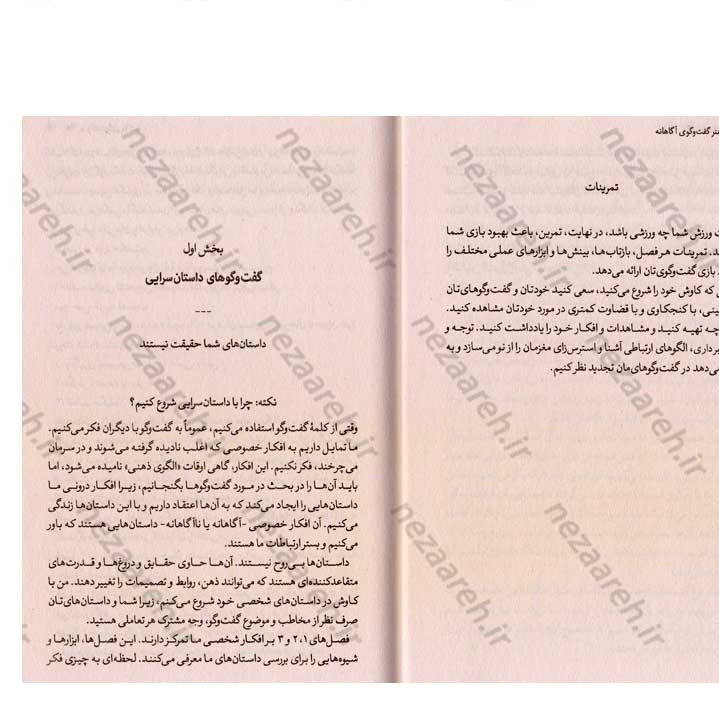 هنر گفت‌وگوی آگاهانه
تمرینات
ورزش شما چه ورزشی باشد، در نهایت، تمرین، باعث بهبود بازی شما
تمرینات هر فصل، بازتاب‌ها، بینش‌ها و ابزارهای عملی مختلف را
بازی گفت‌وگوی‌تان ارائه می‌دهد.
که کاوش خود را شروع می‌کنید، سعی کنید خودتان و گفت‌وگوهای‌تان
با کنجکاوی و با قضاوت کمتری در مورد خودتان مشاهده کنید.
تهیه کنید و مشاهدات و افکار خود را یادداشت کنید. توجه و
الگوهای ارتباطی آشنا و استرس‌زای مغزمان را از نو می‌سازد و به
می‌دهد در گفت‌وگوهای‌مان تجدید نظر کنیم.
بخش اول
گفت‌وگوهای داستان‌سرایی
---
داستان‌های شما حقیقت نیستند
نکته: چرا با داستان‌سرایی شروع کنیم؟
وقتی از کلمهٔ گفت‌وگو استفاده می‌کنیم، عموماً به گفت‌وگو با دیگران فکر می‌کنیم.
ما تمایل داریم به افکار خصوصی که اغلب نادیده گرفته می‌شوند و در سرمان
می‌چرخند، فکر نکنیم. این افکار، گاهی اوقات «الگوی ذهنی» نامیده می‌شود، اما
باید آن‌ها را در بحث در مورد گفت‌وگوها بگنجانیم، زیرا افکار درونی ما
داستان‌هایی را ایجاد می‌کند که به آن‌ها اعتقاد داریم و با این داستان‌ها زندگی
می‌کنیم. آن افکار خصوصی -آگاهانه یا ناآگاهانه- داستان‌هایی هستند که باور
می‌کنیم و بستر ارتباطات ما هستند.
داستان‌ها بی‌روح نیستند. آن‌ها حاوی حقایق و دروغ‌ها و قدرت‌های
متقاعدکننده‌ای هستند که می‌توانند ذهن، روابط و تصمیمات را تغییر دهند. من با
کاوش در داستان‌های شخصی خود شروع می‌کنم، زیرا شما و داستان‌های‌تان
صرف نظر از مخاطب و موضوع گفت‌وگو، وجه مشترک هر تعاملی هستید.
فصل‌های ۱، ۲ و ۳ بر افکار شخصی ما تمرکز دارند. این فصل‌ها، ابزارها و
شیوه‌هایی را برای بررسی داستان‌های ما معرفی می‌کنند. لحظه‌ای به چیزی فکر
nezaareh.ir
nezaareh.ir
nezaareh.ir
nezaareh.ir
nezaareh.ir
nezaareh.ir
nezaareh.ir
nezaareh.ir
nezaareh.ir